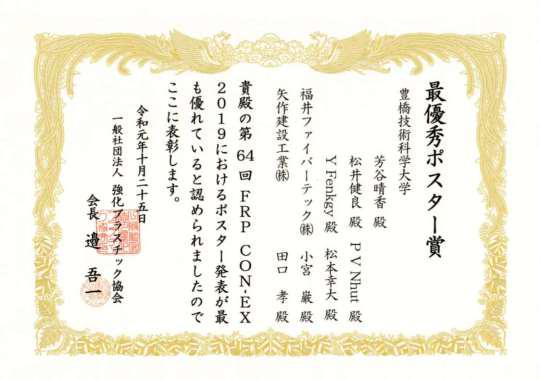 最優秀ポスター賞
豊橋技術科学大学
芳谷晴香 殿
松井健良 殿 P V Nhut 殿
Y Fenkgy 殿 松本幸大 殿
福井ファイバーテック㈱ 小宮 巌 殿
矢作建設工業㈱ 田口 孝 殿
貴殿の第64回 FRP CON-EX
2019におけるポスター発表が最
も優れていると認められましたので
ここに表彰します。
令和元年十月二十五日
一般社団法人 強化プラスチック協会
会長 邉 吾一